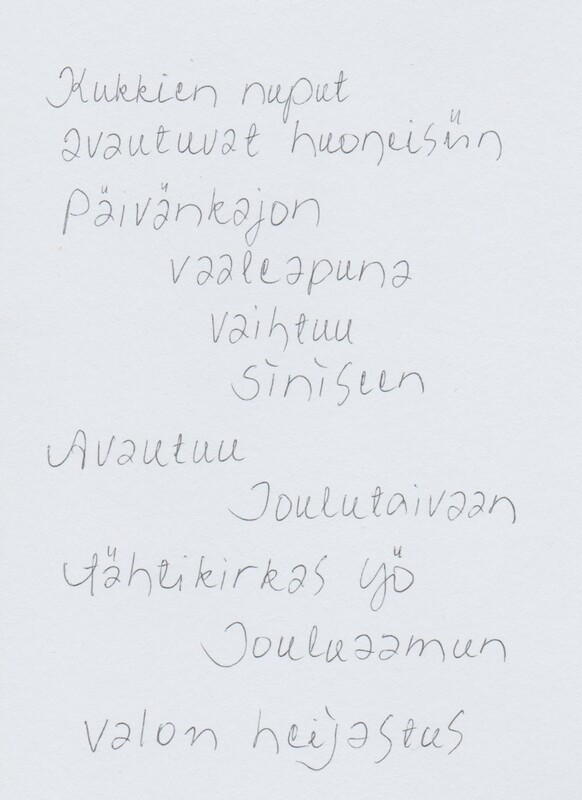 Kukkien nuput
avautuvat huoneisiin
Päivänkajon
vaaleapuna
vaihtuu
siniseen
Avautuu
Joulutaivaan
tähtikirkas yö
Jouluaamun
valon heijastus